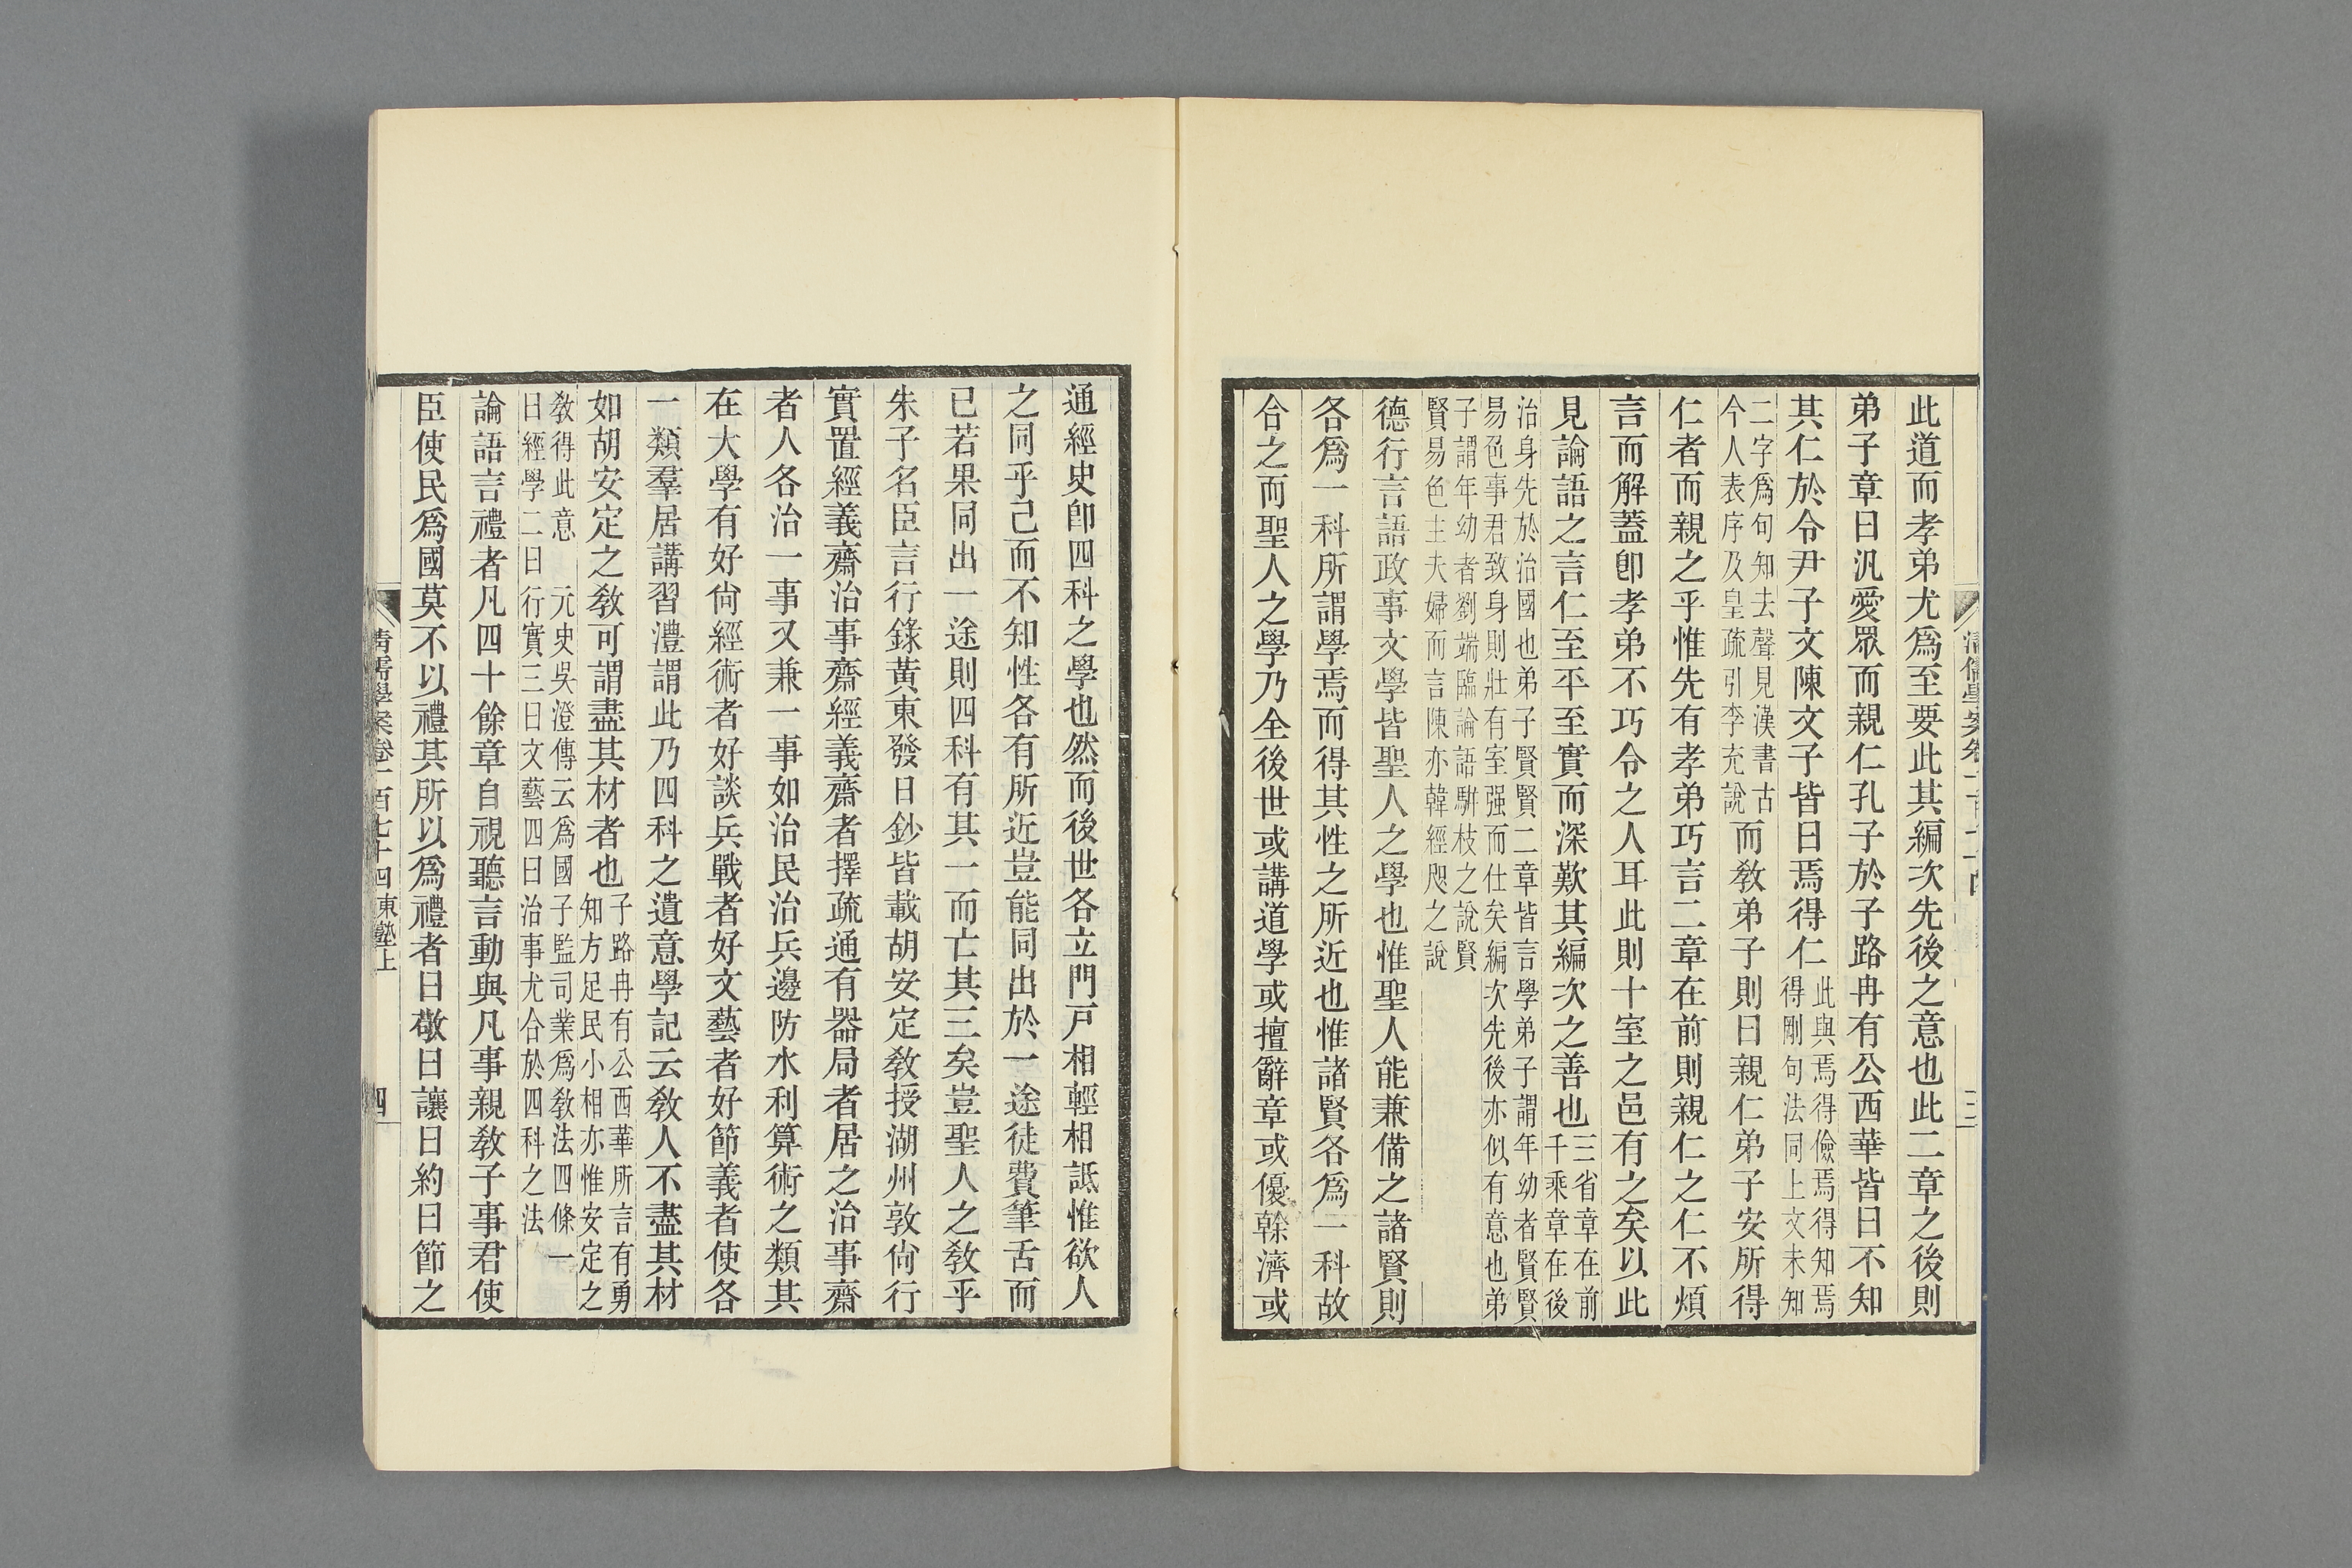 清儒學案卷一百七十四
三
此道而孝弟尤爲至要此其編次先後之意也此二章之後則
弟子章曰汎愛眾而親仁孔子於子路冉有公西華皆曰不知
其仁於令尹子文陳文子皆曰焉得仁此與焉得儉焉得知焉得剛句法同上文未知
二字爲句知去聲見漢書古今人表序及皇疏引李充說而敎弟子則曰親仁弟子安所得
仁者而親之乎惟先有孝弟巧言二章在前則親仁之仁不煩
言而解蓋卽孝弟不巧令之人耳此則十室之邑有之矣以此
見論語之言仁至平至實而深歎其編次之善也三省章在前千乘章在後
治身先於治國也弟子賢賢二章皆言學弟子謂年幼者賢賢
易色事君致身則壯有室强而仕矣編次先後亦似有意也弟
子謂年幼者劉端臨論語駢枝之說賢
賢易色主夫婦而言陳亦韓經咫之說
德行言語政事文學皆聖人之學也惟聖人能兼備之諸賢則
各爲一科所謂學焉而得其性之所近也惟諸賢各爲一科故
合之而聖人之學乃全後世或講道學或擅辭章或優榦濟或
通經史卽四科之學也然而後世各立門戸相輕相詆惟欲人
之同乎己而不知性各有所近豈能同出於一途徒費筆舌而
已若果同出一途則四科有其一而亡其三矣豈聖人之敎乎
朱子名臣言行錄黃東發日鈔皆載胡安定敎授湖州敦尙行
實置經義齋治事齋經義齋者擇疏通有器局者居之治事齋
者人各治一事又兼一事如治民治兵邊防水利算術之類其
在大學有好尙經術者好談兵戰者好文藝者好節義者使各
一類羣居講習澧謂此乃四科之遺意學記云敎人不盡其材
如胡安定之敎可謂盡其材者也子路冉有公西華所言有勇知方足民小相亦惟安定之
敎得此意　元史吳澄傳云爲國子監司業爲敎法四條一
曰經學二曰行實三曰文藝四曰治事尤合於四科之法
論語言禮者凡四十餘章自視聽言動與凡事親敎子事君使
臣使民爲國莫不以禮其所以爲禮者曰敬曰讓曰約曰節之
清儒學案卷一百七十四東塾上
四